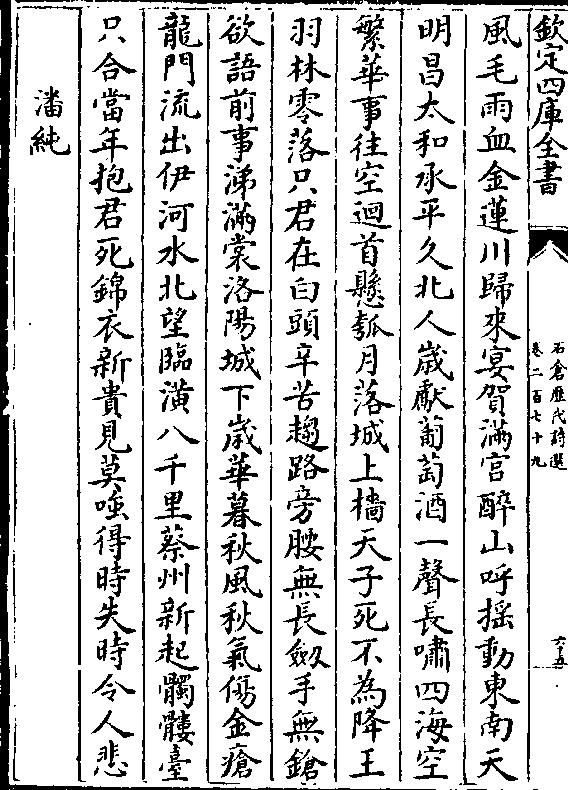 欽定四庫全書
石倉歷代詩選
卷二百七十九
風毛雨血金蓮川歸來宴賀滿宮醉山呼搖動東南天
明昌太和承平久北人歲獻葡萄酒一聲長嘯四海空
繁華事往空迴首懸瓠月落城上檣天子死不為降王
羽林零落只君在白頭辛苦趨路旁腰無長劒手無鎗
欲語前事涕滿裳洛陽城下歲華暮秋風秋氣傷金瘡
龍門流出伊河水北望臨潢八千里蔡州新起髑髏臺
只合當年抱君死錦衣新貴見莫嗤得時失時令人悲
潘純